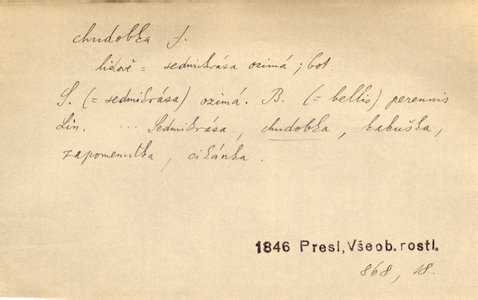 chudobka f.
lidově = sedmikrása ozimá; bot
S. (= sedmikrása) ozimá. B. (= bellis) perennis
Lin. ... Sedmikrása, chudobka, kakuška,
zapomenutka, cikánka.
1846 Presl, Všeob. rostl.
868, 18.